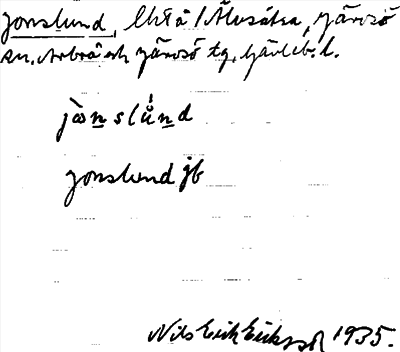 Jonslund, Ektå / Älvsätra, Järvsö
sn. Arbrå och Järvsö tg. Gävleb. l.
jònslúnd
jonslund jb
Nils Erik Eriksson 1935.